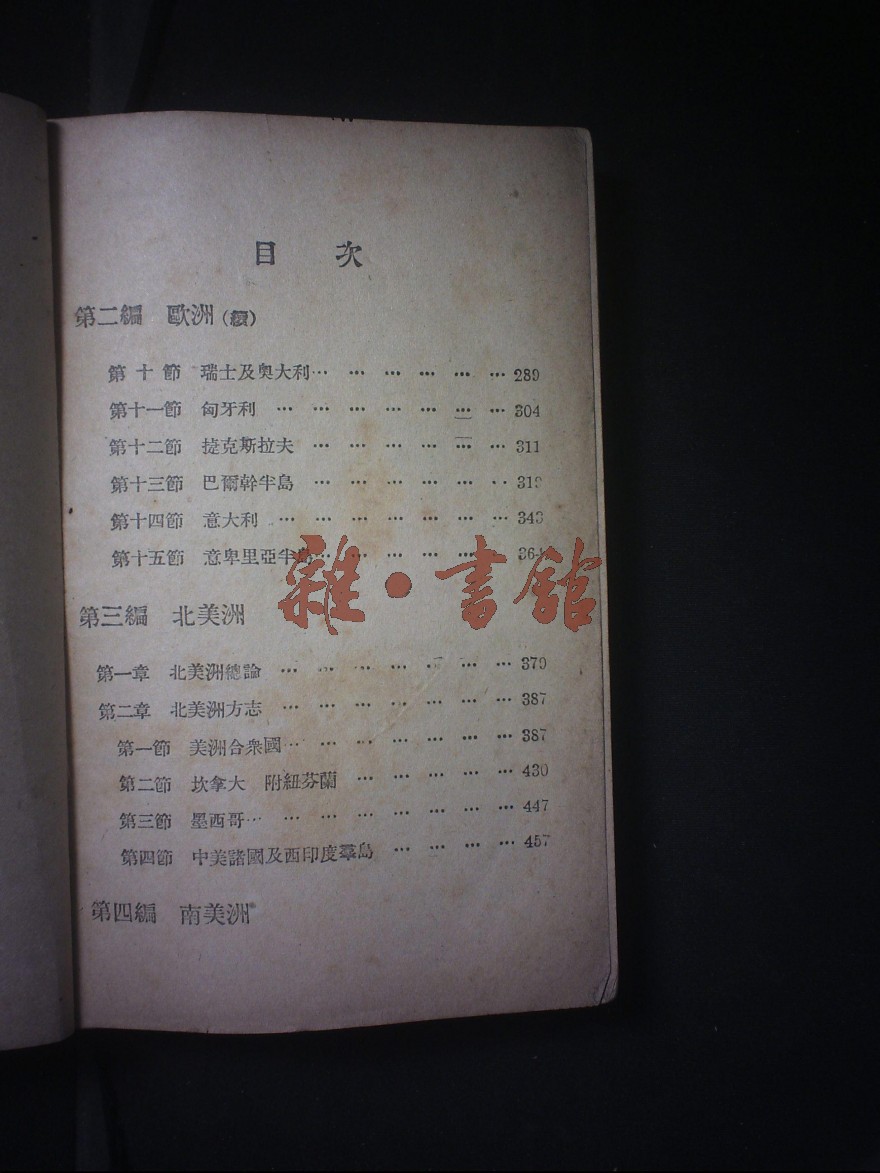 目 次
第二編 歐洲(續)
第 十 節 瑞士及奧大利… … … … … … 289
第十一節 匈牙利 … … … … … … … 304
第十二節 捷克斯拉夫 … … … … … … 311
第十三節 巴爾幹半島 … … … … … ‥ 31
第十四節 意大利 … … … … … … … 343
第十五節 意卑里亞半島… … … … … 36
雜·書館
第三編 北美洲
第一章 北美洲總論 … … … … … … … 379
第二章 北美洲方志 … … … … … … … 387
第一節 美洲合衆國… … … … … … … 387
第二節 坎拿大 附紐芬蘭 … … … … … 430
第三節 墨西哥… … … … … … … … 447
第四節 中美諸國及西印度羣島 … … … … 457
第四編 南美洲